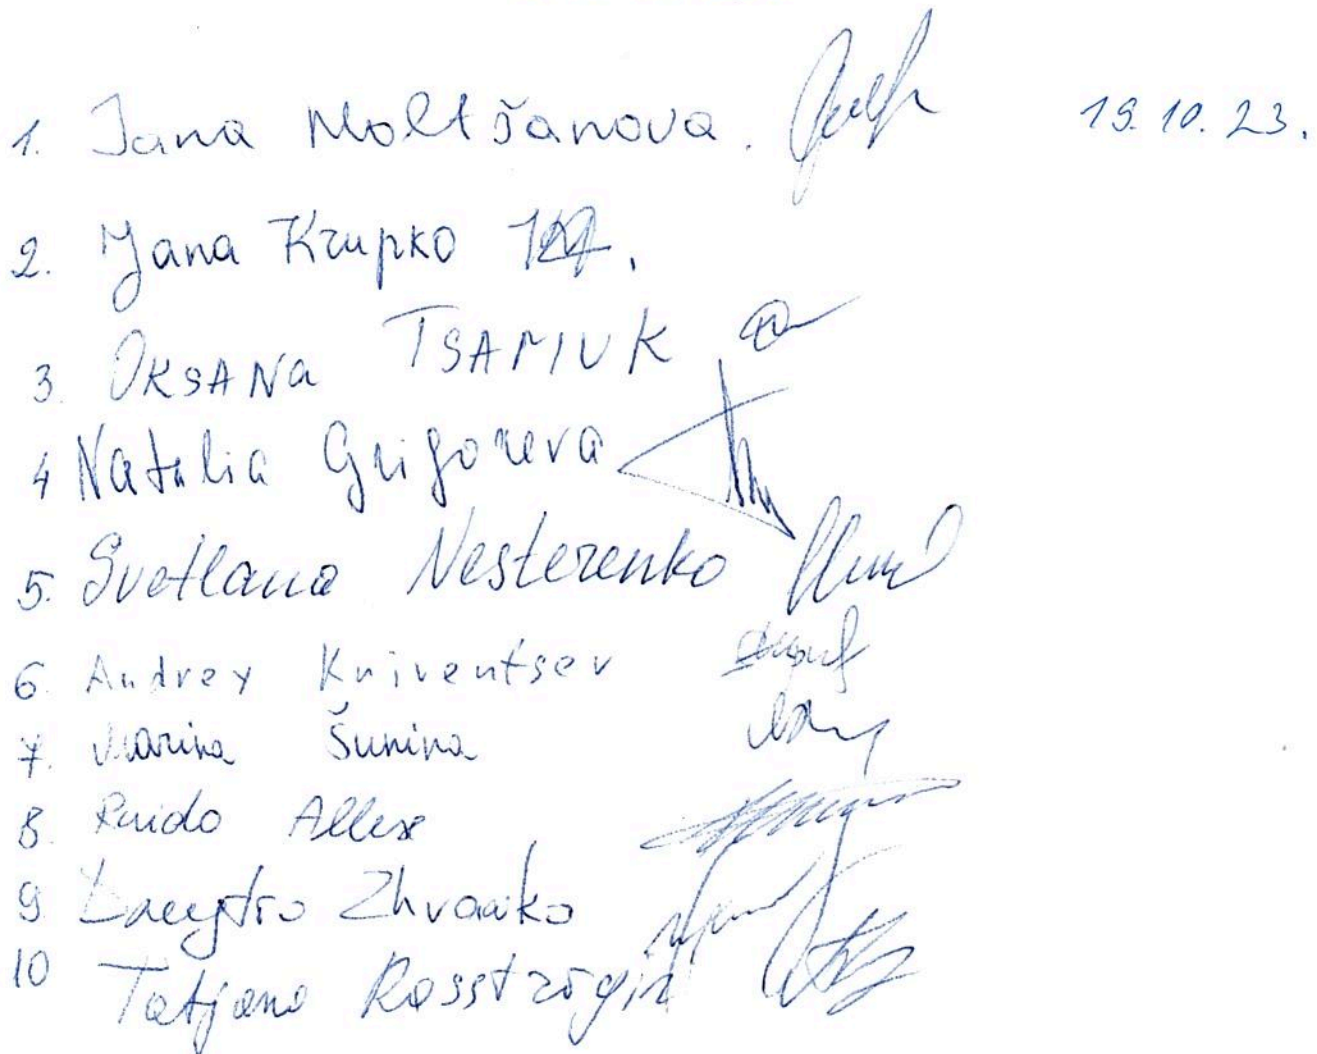 1. Jana Moltšanova. 19.10.23.
2. Jana Krupko
3. OKSANA TSAPIUK
4 Natalia Grigoreva
5. Svetlana Nesterenko
6. Andrey Kniventsev
7. Marina Šunina
8. Raido Allese
9 Dmytro Zhvanko
10 Tatjana Rosstrõgin